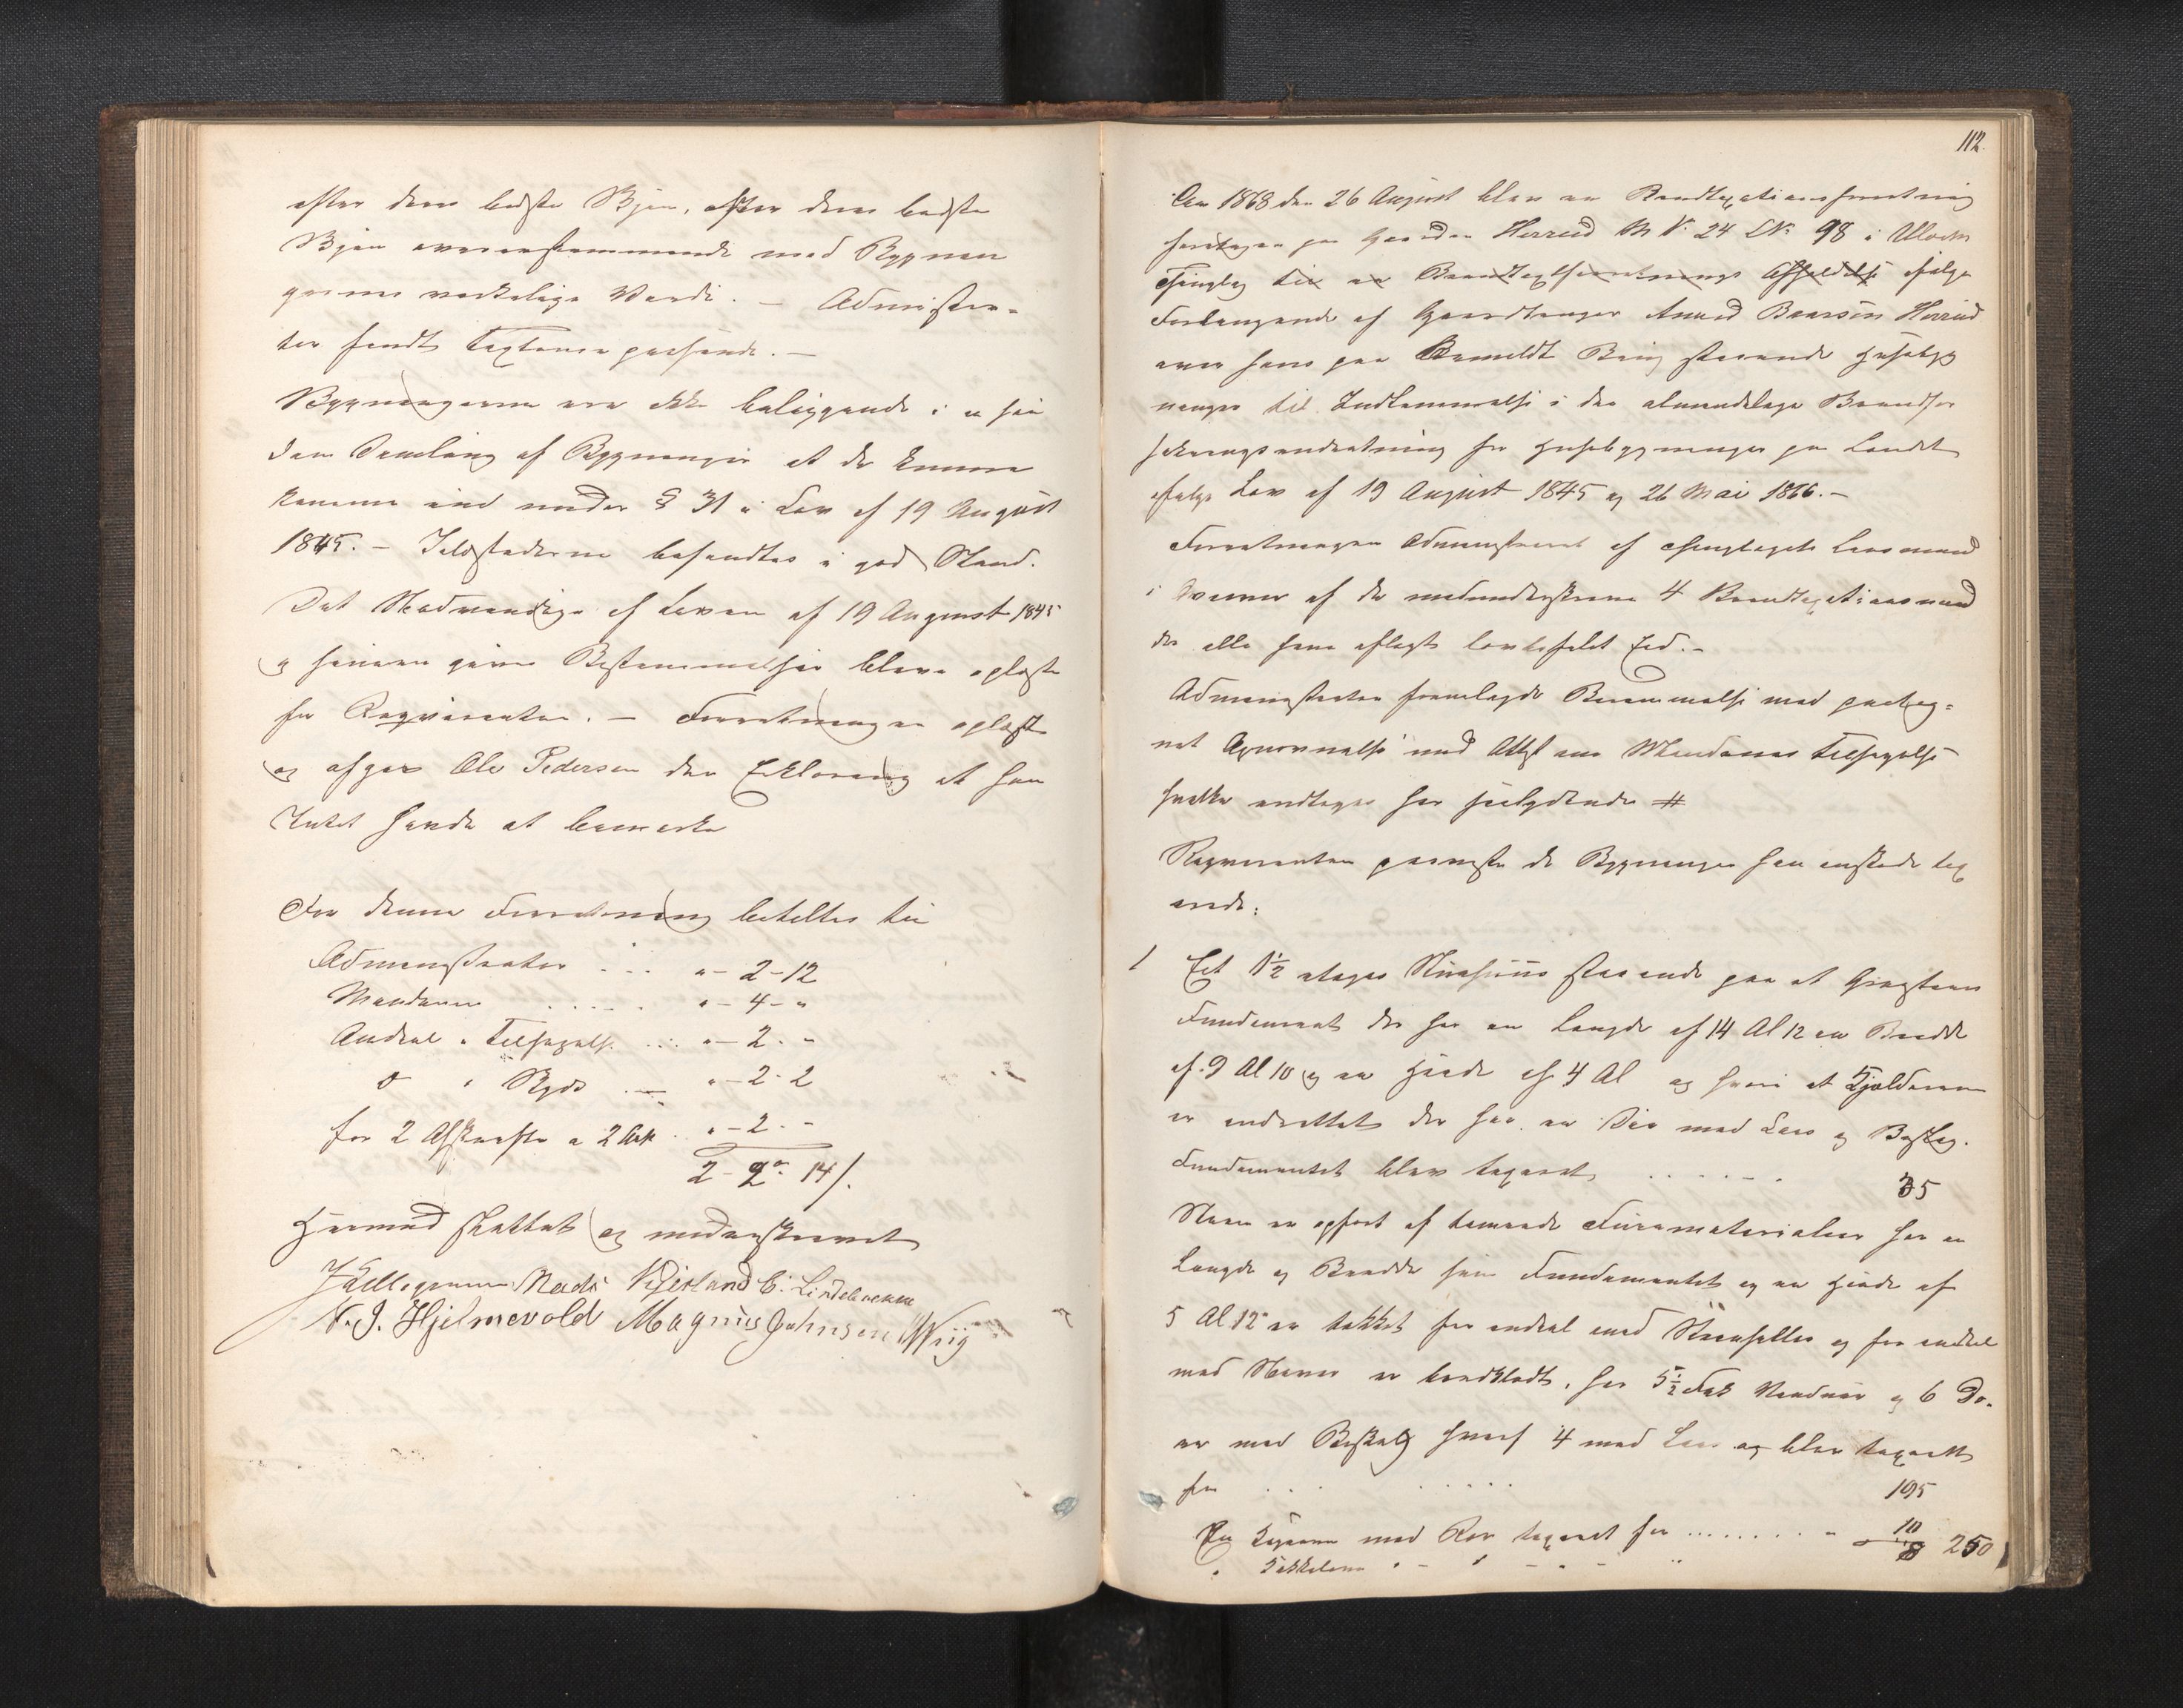 efter deres bedste Skjøn, efter deres bedste
Skjøn overensstemmende med Bygnin
gernes virkelige Værdi. — Administra-
tor fandt Taxterne passende. —
Bygningerne ere ikke beliggende i en saa
dan Samling af Bygninger at de kunne
komme ind under § 31 i Lov af 19 August
1845. — Ildstederne befandtes i god Stand.
Det Nødvendige af Loven af 19 August 1845
og senere givne Bestemmelser bleve oplæste
for Reqvirenten. — Forretningen oplæst
og afgav Ole Pedersen den Erklæring at han
Intet havde at bemærke
For denne Forretning betaltes til
Administrator . . . " – 2 – 12
Mændene . . . . . " – 4 – "
Andeel i Tilsigelse . . . " – 2 - "
do i Skyds — " – 2 - 2
for 2 Afskrifte a 2 Ark . " – 2 - "
2 – 2 " 14 /.
Hermed sluttet og underskrevet
Mads C. Lindebrekke
N. J. Hjelmevold Magnus Johnsen Wiig
112.
Aar 1868 den 26 August blev en Brandtaxationsforretning
foretagen paa Gaarden Herred M N: 24 LN: 98 i
Thinglag til en Brandtaxtforretnings Afholdelse ifølge
Forlangende af Gaardbruger Amund Baarsen Herred
over hans paa anmeldte Brug staaende Husebyg
ninger til Indlemmelse i den almindelige Brandfor
sikringsindretning for Husebygninger paa Landet
ifølge Lov af 19 August 1845 og 26 Mai 1866. —
Forretningen administreret af Thinglagets Lensmand
i Overvær af de medunderskrevne 4 Brandtaxationsmænd
der alle have aflagt lovbefalet Eed. –
Administrator fremlagde Berammelse med paateg=
net Opnævnelse med Attest om Mændenes Tilsigelse
hvilke indtages her saalydende #
Reqvirenten paaviste de Bygninger han ønskede tax
erede:
1 Eet 1½ etages Vaanhuus staaende paa et Graasteens
Fundament der har en Længde af 14 Al 12 en Bredde
af 9 Al 10 og en Høide af 4 Al og hvori et Kjælderrum
er indrettet der har en Dør med Laas og Beslag.
Fundamentet blev taxeret . . . . . . 35
Vaanen er opført af tømrede Furumaterialier har en
Længde og Bredde som Fundamentet og en Høide af
5 Al 12" er tækket for endeel med Steenheller og for endeel
med Næver er bordklædt, har 5½ Fag Vinduer og 6 Dø-
re med Beslag hvoraf 4 med Laas og blev taxeret
for . . . . . . . . 195
En med Rør taxeret for . . . . . . . . " 10
" Kakkelovn " – " – " – " 8 250